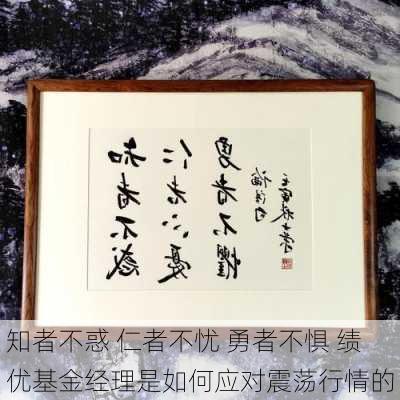 知者不惑
仁者不憂
勇者不懼
知者不惑 仁者不忧 勇者不惧 绩
优基金经理是如何应对震荡行情的